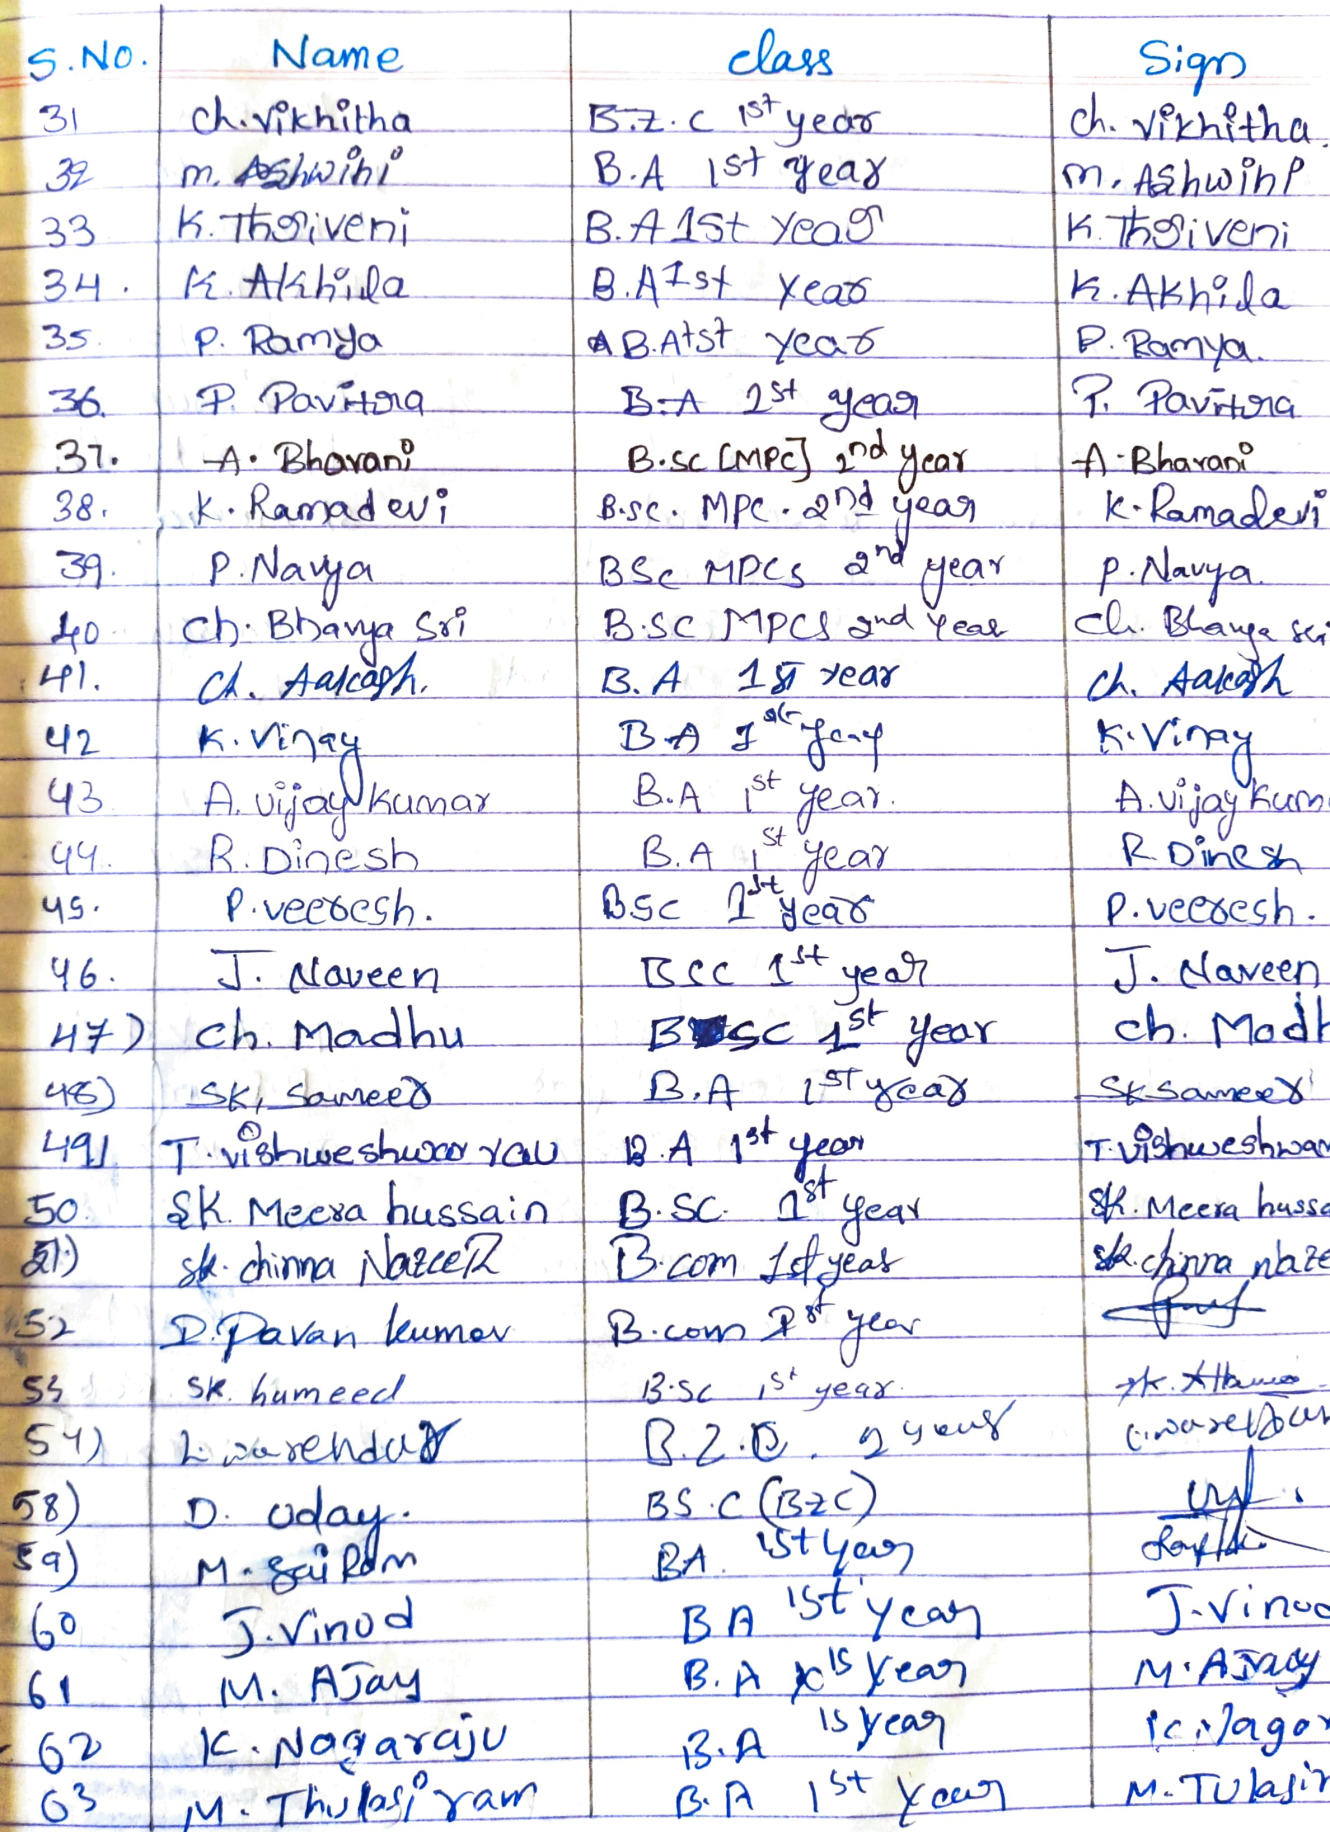 S.No. Name class Sign
31 Ch. Vikhitha B.Z.C 1st year Ch. Vikhitha.
32 M. Ashwini B.A 1st year M. Ashwini
33 K. Thriveni B.A 1st Year K. Thriveni
34. K. Akhila B.A 1st Year K. Akhila
35. P. Ramya B.A 1st Year P. Ramya.
36. P. Pavitra B.A 1st year P. Pavitra
37. A. Bhavani B.SC [MPC] 2nd year A. Bhavani
38. K. Ramadevi B.SC. MPC. 2nd year K. Ramadevi
39. P. Navya BSc MPCs 2nd year P. Navya.
40 Ch. Bhavya Sri B.SC MPCS 2nd Year Ch. Bhavya Sri
41. Ch. Aakash. B.A 1st year Ch. Aakash
42 K. Vinay B.A 1st year K. Vinay
43 A. Vijay Kumar B.A 1st year. A. Vijay Kum
44. R. Dinesh B.A 1st year R Dinesh
45. P. veeresh. B.SC 1st year P. veeresh.
46. J. Naveen BSC 1st year J. Naveen
47) Ch. Madhu BSC 1st year Ch. Madh
48) SK, Sameer B.A 1st year SK Sameer
49) T. vishweshwar rau B.A 1st year T. vishweshwar
50. SK. Meera hussain B.SC. 1st year SK. Meera hussa
51) sk. chinna NazeeR B.com 1st year sk. chinna naze
52 D. Pavan kumar B.com 1st year
53 SK. hameed B.SC 1st year.
54) L. narendar B.Z.C. 2 year
58) D. Uday. BS.C (BZC)
59) M. Sai Ram BA. 1st year
60 J. Vinod BA 1st year J. Vinod
61 M. AJay B.A 1s year M. AJay
62 K. Nagaraju B.A 1s year K. Nagar
63 M. Thulasi ram B.A 1st year M. Tulasir